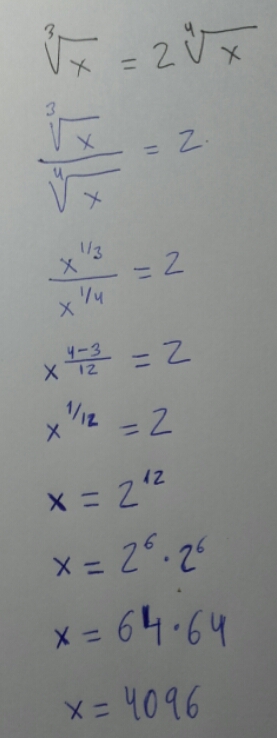 ∛x = 2 ∜x
∛x / ∜x = 2.
x^(1/3) / x^(1/4) = 2
x^((4-3)/12) = 2
x^(1/12) = 2
x = 2^12
x = 2^6 · 2^6
x = 64 · 64
x = 4096